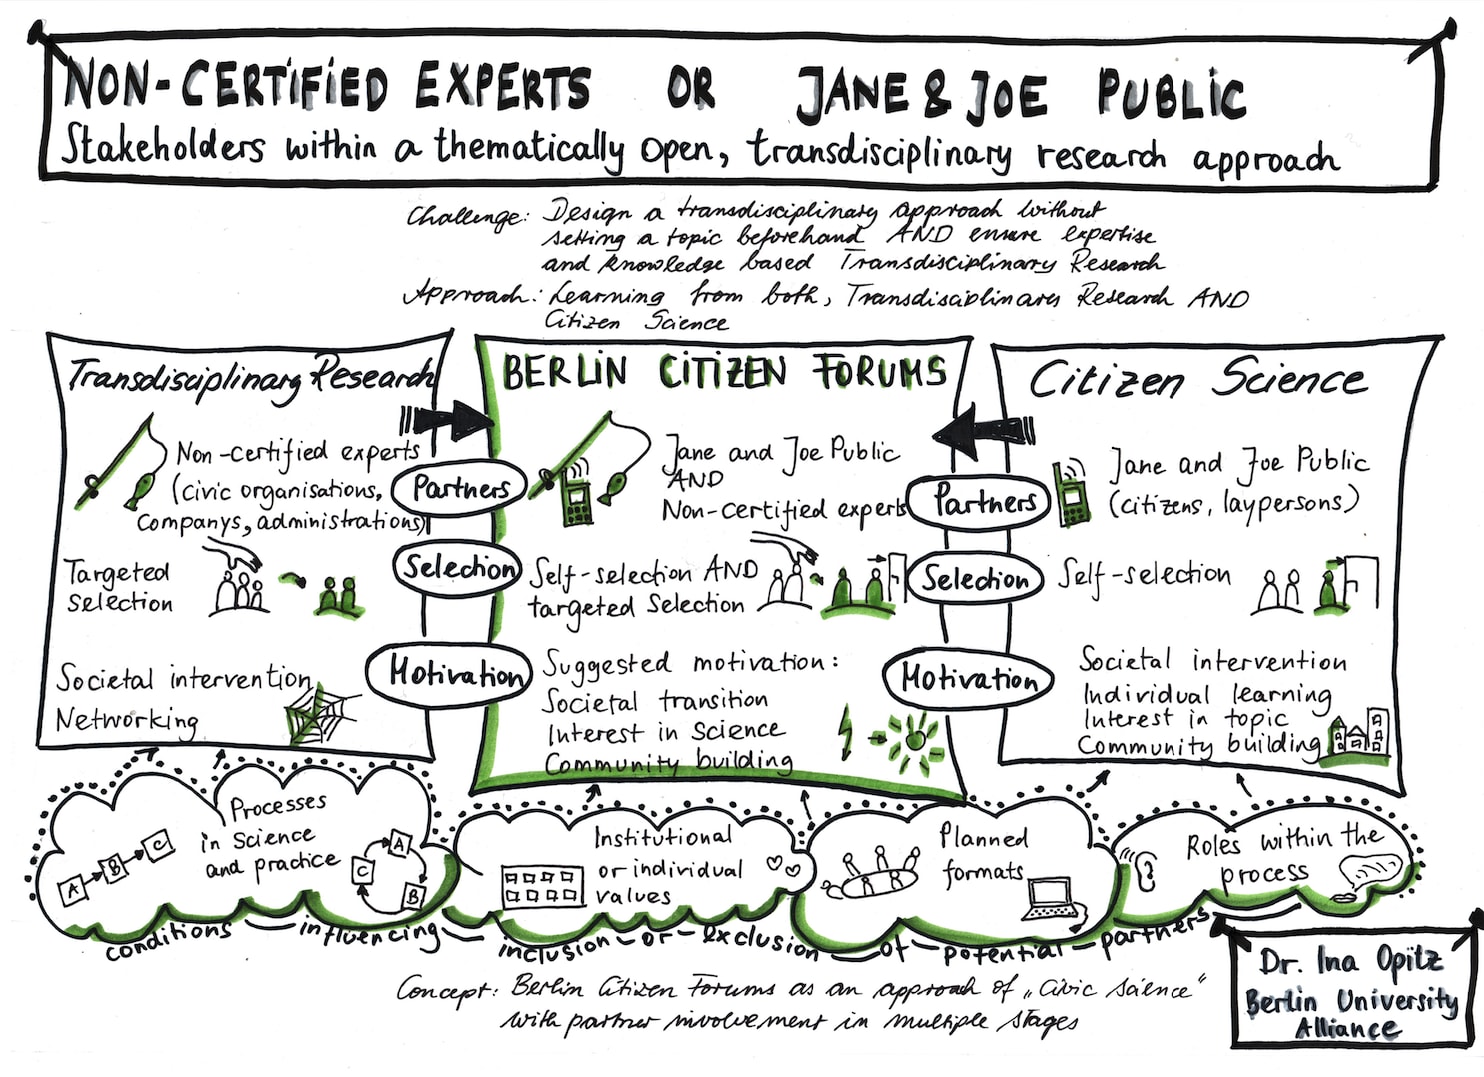 NON-CERTIFIED EXPERTS OR JANE & JOE PUBLIC
Stakeholders within a thematically open, transdisciplinary research approach
Challenge: Design a transdisciplinary approach without
setting a topic beforehand AND ensure expertise
and knowledge based Transdisciplinary Research
Approach: Learning from both, Transdisciplinary Research AND
Citizen Science
Transdisciplinary Research
Non-certified experts
(civic organisations,
companys, administrations)
Targeted
selection
Societal intervention
Networking
Partners
Selection
Motivation
BERLIN CITIZEN FORUMS
Jane and Joe Public
AND
Non-certified expert
Self-selection AND
targeted selection
Suggested motivation:
Societal transition
Interest in Science
Community building
Partners
Selection
Motivation
Citizen Science
Jane and Joe Public
(citizens, laypersons)
Self-selection
Societal intervention
Individual learning
Interest in topic
Community building
Processes
in Science
and practice
A B C
A
B
C
Institutional
or individual
values
Planned
formats
Roles within the
process
conditions influencing inclusion-or-exclusion of potential partners
Concept: Berlin Citizen Forums as an approach of „Civic Science“
with partner involvement in multiple stages
Dr. Ina Opitz
Berlin University
Alliance